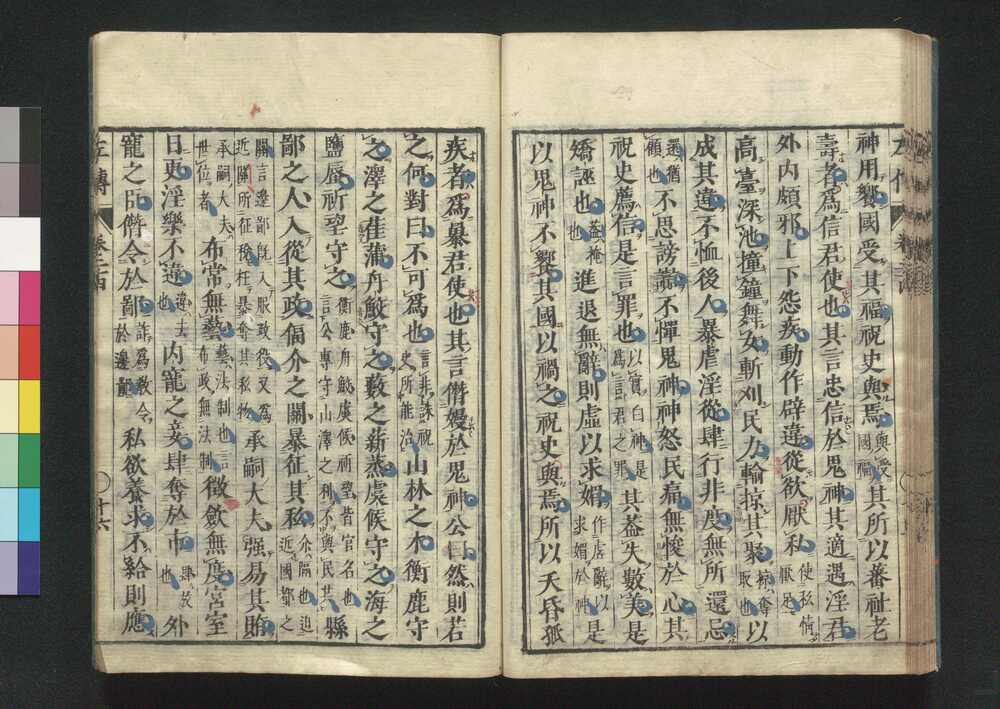 神用饗國受其福祝史與焉與受國福其所以蕃祉老
壽者爲信君使也其言忠信於鬼神其適遇淫君
外内頗邪上下怨疾動作辟違從欲厭私使私情厭足
高臺深池撞鐘舞女斬刈民力輸掠其聚掠奪取也以
成其違不恤後人暴虐淫從肆行非度無所還忌
還猶顧也不思謗讟不憚鬼神神怒民痛無悛於心其
祝史薦信是言罪也以實白神是爲言君之罪其蓋失數美是
矯誣也蓋掩也進退無辭則虛以求媚作虛辭以求媚於神是
以鬼神不饗其國以禍之祝史與焉所以夭昏孤
疾者爲暴君使也其言僭嫚於鬼神公曰然則若
之何對曰不可爲也言非誅祝史所能治山林之木衡鹿守
之澤之萑蒲舟鮫守之藪之薪蒸虞候守之海之
鹽蜃祈望守之衡鹿舟鮫虞候祈望皆官名也言公專守山澤之利不與民共縣
鄙之人入從其政偪介之關暴征其私介隔也迫近國都之
關言邊鄙既入服政役又爲近關所征稅枉暴奪其私物承嗣大夫强易其賄
承嗣大夫世位者布常無藝藝法制也言布政無法制徵斂無度宮室
日更淫樂不違違去也内寵之妾肆奪於市肆放也外
寵之臣僭令於鄙詐爲教令於邊鄙私欲養求不給則應
左傳
十六